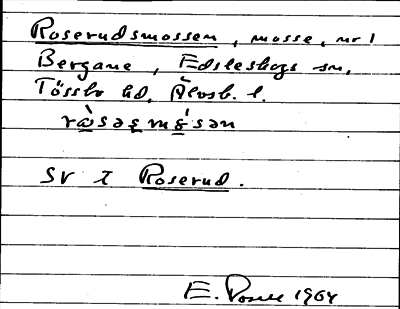 Roserudsmossen, mosse, nr 1
Bergane, Edsleskogs sn,
Tössbo hd, Älvsb. l.
Sv I Roserud.
E. 1964